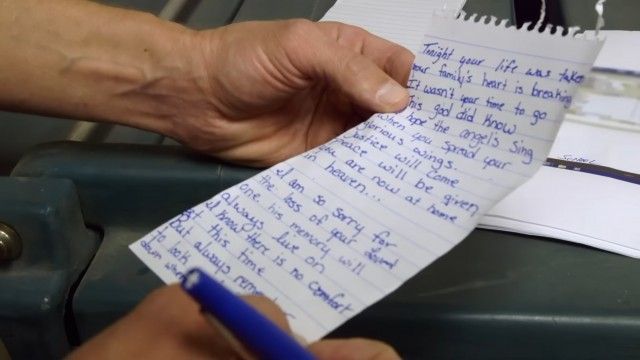 Tnight your life was taken
your family's heart is breaking
It wasn't your time to go
This god did know
hope the angels sing
when you spread your
glorious wings.
will come
peace will be given
you are now at home
in heaven...
I am so sorry for
the loss of your loved
one his memory will
always live on
I know there is no comfort
At this time
But always remember
to look
when